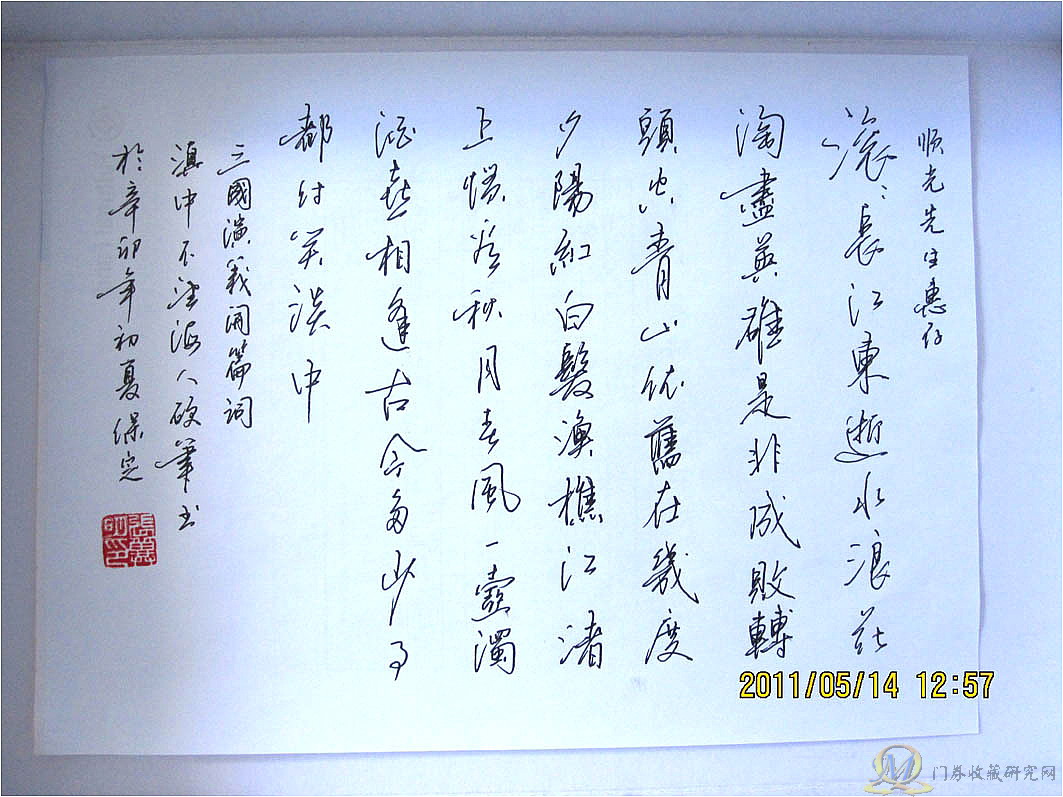 顺光先生惠存
滚滚長江東逝水浪花
淘盡英雄是非成敗轉
頭空青山依舊在幾度
夕陽紅白髮漁樵江渚
上慣看秋月春風一壺濁
酒喜相逢古今多少事
都付笑談中
三國演義開篇詞
滇中不海人硬筆书
於辛卯年初夏保定
2011/05/14 12:57
门券收藏研究网